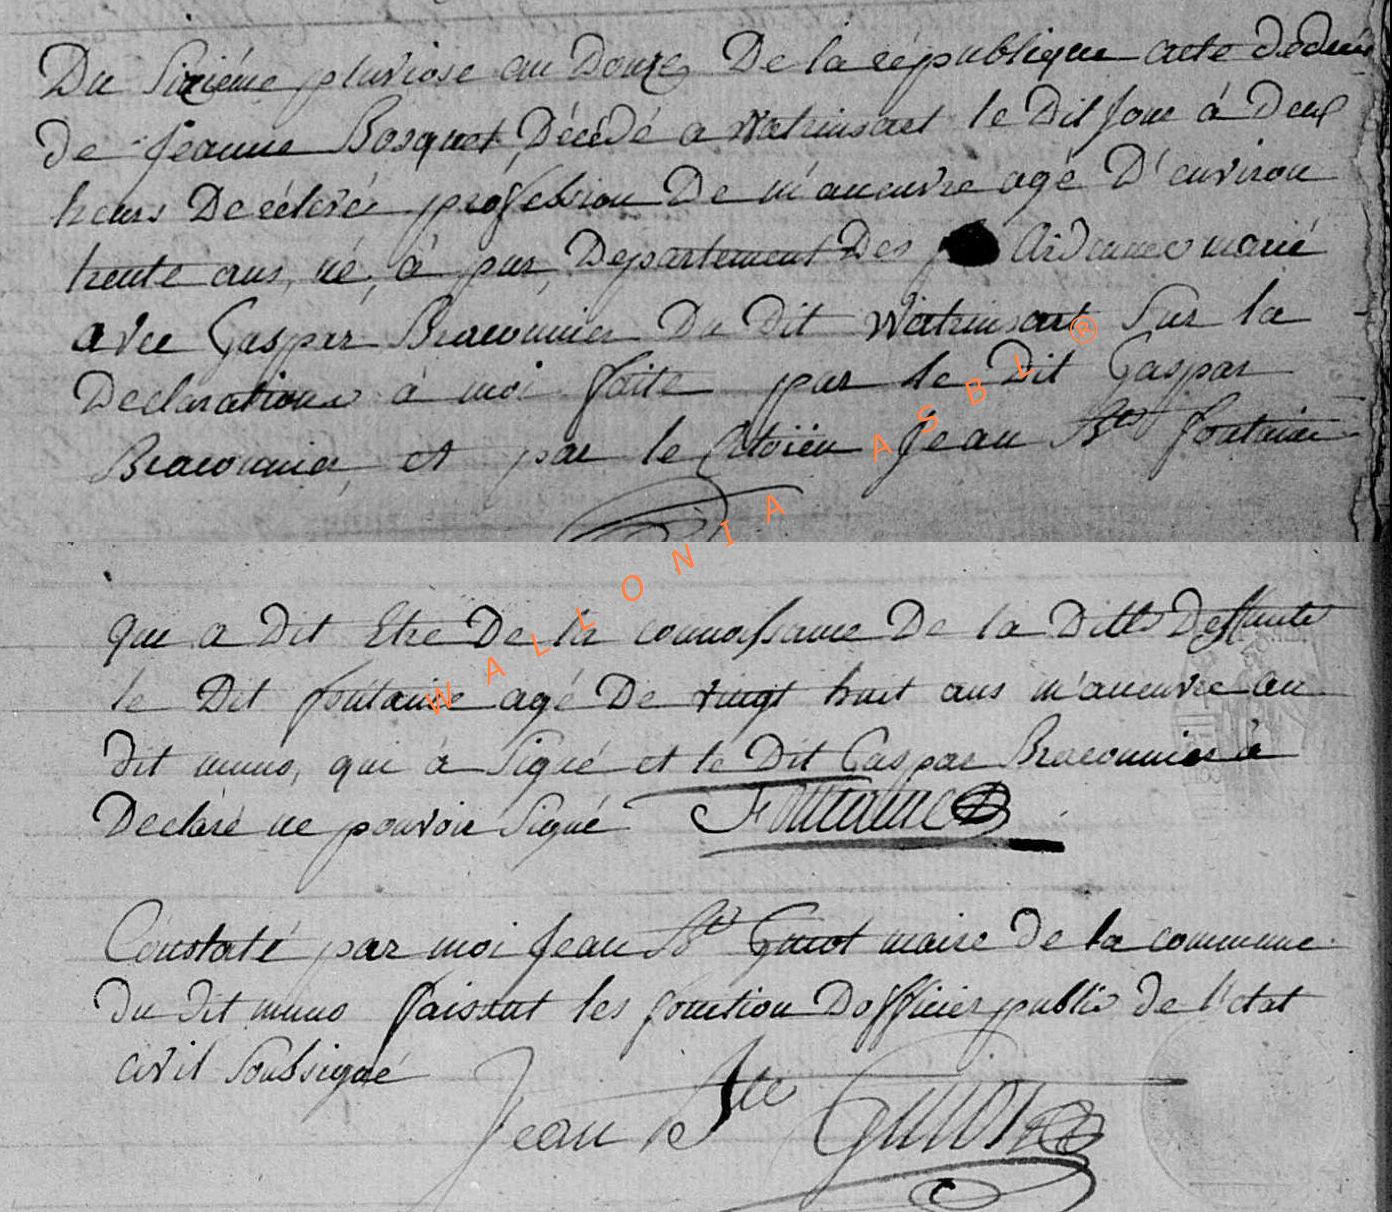 Du Sixiéme pluviose an Douze De la république acte de decès
de jéanne Bosquet, Décédé a Watrinsart le Dit Jour à Deux
heurs De rélevé profession De m'aneuvre agé D'environ
trente ans, né, à pur, Departement Des Ardennes marié
avec Gaspar Braconnier Du Dit Watrinsart Sur la
Declarations à moi faite par le Dit Gaspar
Braconnier, et par le Citoïen Jean Bte fontaine
que a Dit Etre De la connaissance De la Ditte Deffunte
le Dit fontaine agé De vingt huit ans m'aneuvre au
dit muno, qui à Signé et le Dit Gaspar Braconnier à
Declaré ne pouvoir Signé Fontaine
Constaté par moi Jean Bte Guiot maire de la commune
du dit muno faissant les fonction Dofficier public de l'etat
civil Soussigné
Jean Bte Guiot
WALLONIA ASBL ®